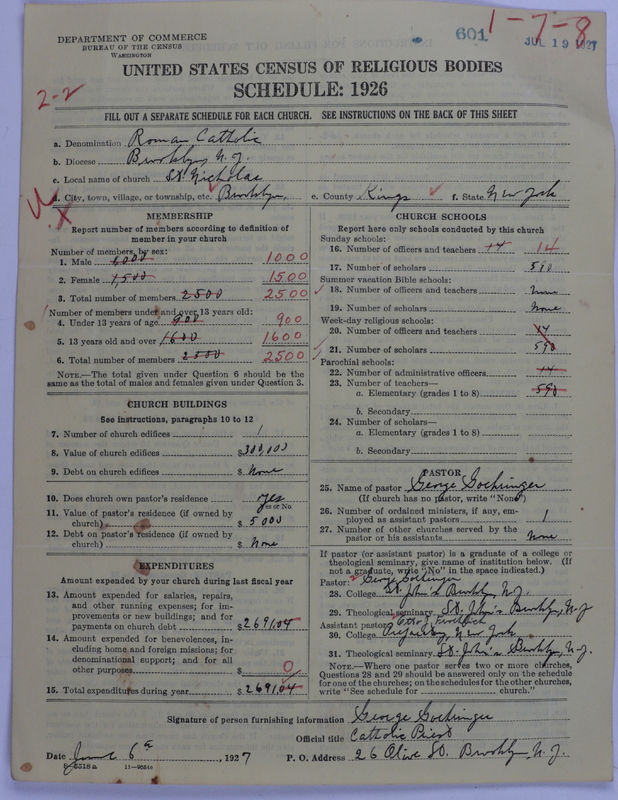 1-7-8
601
JUL 19 1927
DEPARTMENT OF COMMERCE
BUREAU OF THE CENSUS
WASHINGTON
UNITED STATES CENSUS OF RELIGIOUS BODIES
SCHEDULE: 1926
2-2
FILL OUT A SEPARATE SCHEDULE FOR EACH CHURCH. SEE INSTRUCTIONS ON THE BACK OF THIS SHEET
a. Denomination Roman Catholic
b. Diocese Brooklyn, N.Y.
c. Local name of church St. Nicholas
d. City, town, village, or township, etc. Brooklyn, e. County Kings f. State New York
MEMBERSHIP
Report number of members according to definition of member in your church
Number of members, by sex:
1. Male 1000 1000
2. Female 1500 1500
3. Total number of members 2500 2500
Number of members under and over 13 years old:
4. Under 13 years of age 900 900
5. 13 years old and over 1600 1600
6. Total number of members 2500 2500
NOTE.—The total given under Question 6 should be the same as the total of males and females given under Question 3.
CHURCH BUILDINGS
See instructions, paragraphs 10 to 12
7. Number of church edifices 1
8. Value of church edifices $300,000
9. Debt on church edifices $ None
10. Does church own pastor's residence yes
Yes or No
11. Value of pastor's residence (if owned by church) $ 5000
12. Debt on pastor's residence (if owned by church) $ None
EXPENDITURES
Amount expended by your church during last fiscal year
13. Amount expended for salaries, repairs, and other running expenses; for improvements or new buildings; and for payments on church debt $2691.04
14. Amount expended for benevolences, including home and foreign missions; for denominational support; and for all other purposes $ 0
15. Total expenditures during year $2691.04
CHURCH SCHOOLS
Report here only schools conducted by this church
Sunday schools:
16. Number of officers and teachers 14 14
17. Number of scholars 590
Summer vacation Bible schools:
18. Number of officers and teachers None
19. Number of scholars None
Week-day religious schools:
20. Number of officers and teachers 14
21. Number of scholars 590
Parochial schools:
22. Number of administrative officers 14
23. Number of teachers—
a. Elementary (grades 1 to 8) 590
b. Secondary
24. Number of scholars—
a. Elementary (grades 1 to 8)
b. Secondary
PASTOR
25. Name of pastor George Goehringer
(If church has no pastor, write "None")
26. Number of ordained ministers, if any, employed as assistant pastors 1
27. Number of other churches served by the pastor or his assistants None
If pastor (or assistant pastor) is a graduate of a college or theological seminary, give name of institution below. (If not a graduate, write "No" in the space indicated.)
Pastor: George Goehringer
28. College St. John's Brooklyn, N.Y.
29. Theological seminary St. John's Brooklyn, N.Y
Assistant pastor:
30. College New York
31. Theological seminary St. John's Brooklyn, N.Y.
NOTE.—Where one pastor serves two or more churches, Questions 28 and 29 should be answered only on the schedule for one of the churches; on the schedules for the other churches, write "See schedule for church."
Signature of person furnishing information George Goehringer
Official title Catholic Priest
Date June 6th, 1927 P. O. Address 26 Olive St. Brooklyn, N.Y.